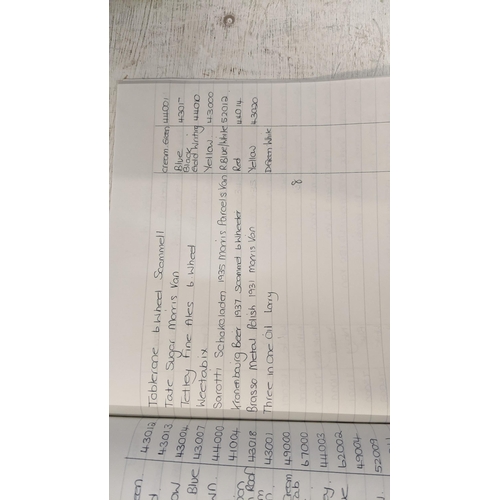 Toblerone 6 Wheel Scammell Cream Green 44001
Tate Sugar Morris Van Blue 43015
Tetley Fine Ales 6 Wheel Black Gold Writing 44020
Weetabix Yellow 43000
Sarotti Schokoladen 1935 Morris Parcels Van R Blue/White 52012
Kronenbourg Beer 1937 Scammel 6 Wheeler Red 44014
Brasso Metal Polish 1931 Morris Van Yellow 43020
Three in One Oil Lorry D Green White
8
43012
43013
43004
Blue 43007
44000
41004
Roof 43018
43001
Cream 49000
67000
44003
62002
49004
52009